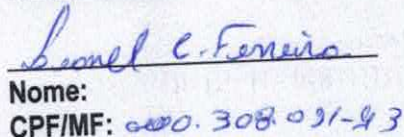 Leonel C. Ferreira
Nome:
CPF/MF: 000.308.091-43